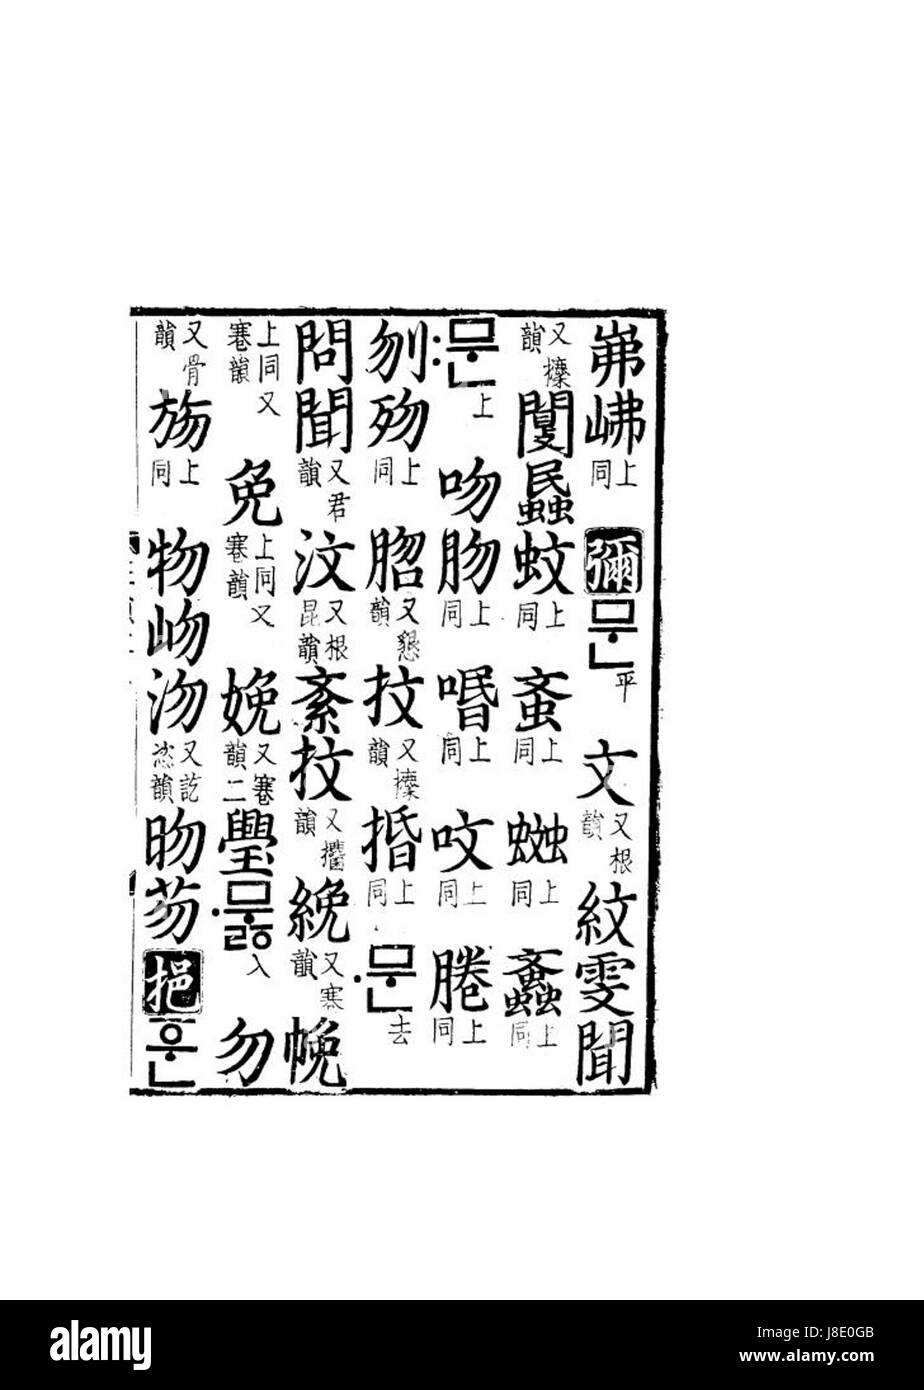 岪 上同 彌 문 平 文 又根韻 紋雯聞
又韻 閿 蚊 上同 蚉 上同 上同 上同
:문 上 吻肳 上同 上同 呅 上同 上同
刎歾 上同 又懇韻 抆 又韻 捪 上同 ·문 去
問聞 又君韻 汶 又根昆韻 紊抆 又韻 絻 又寒韻
上同又韻 免 上同又韻 娩 又韻二 璺 ·무ᇙ 入 勿
又骨韻 上同 物岉沕 又訖韻 昒芴 挹 ᅙᅮᆫ
alamy
Image ID: J8E0GB
www.alamy.com